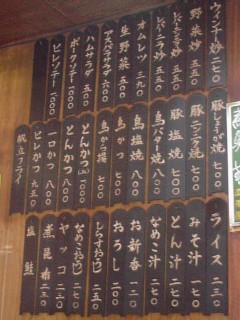 ウィンナー炒 二七〇
野菜炒 五〇〇
レバーニラ炒 五五〇
生野菜 五〇〇
オムレツ 三九〇
アスパラサラダ 六〇〇
ハムサラダ 五五〇
ポークソテー 一〇〇〇
ヒレソテー 一〇〇〇
豚しょうが焼 七〇〇
豚ニンニク焼 七〇〇
豚塩焼 七〇〇
鳥バター焼 八〇〇
鳥塩焼 八〇〇
鳥かつ 七〇〇
鳥から揚 七〇〇
とんかつ(上) 一〇〇〇
とんかつ 八〇〇
一口かつ 八〇〇
ヒレかつ 九五〇
ライス 二三〇
みそ汁 一七〇
とん汁 二二〇
なめこ汁 二二〇
お新香 一二〇
おろし 二五〇
しらすおろし 二五〇
なめこおろし 二五〇
ヤッコ 二五〇
煮昆布 二三〇
塩鮭